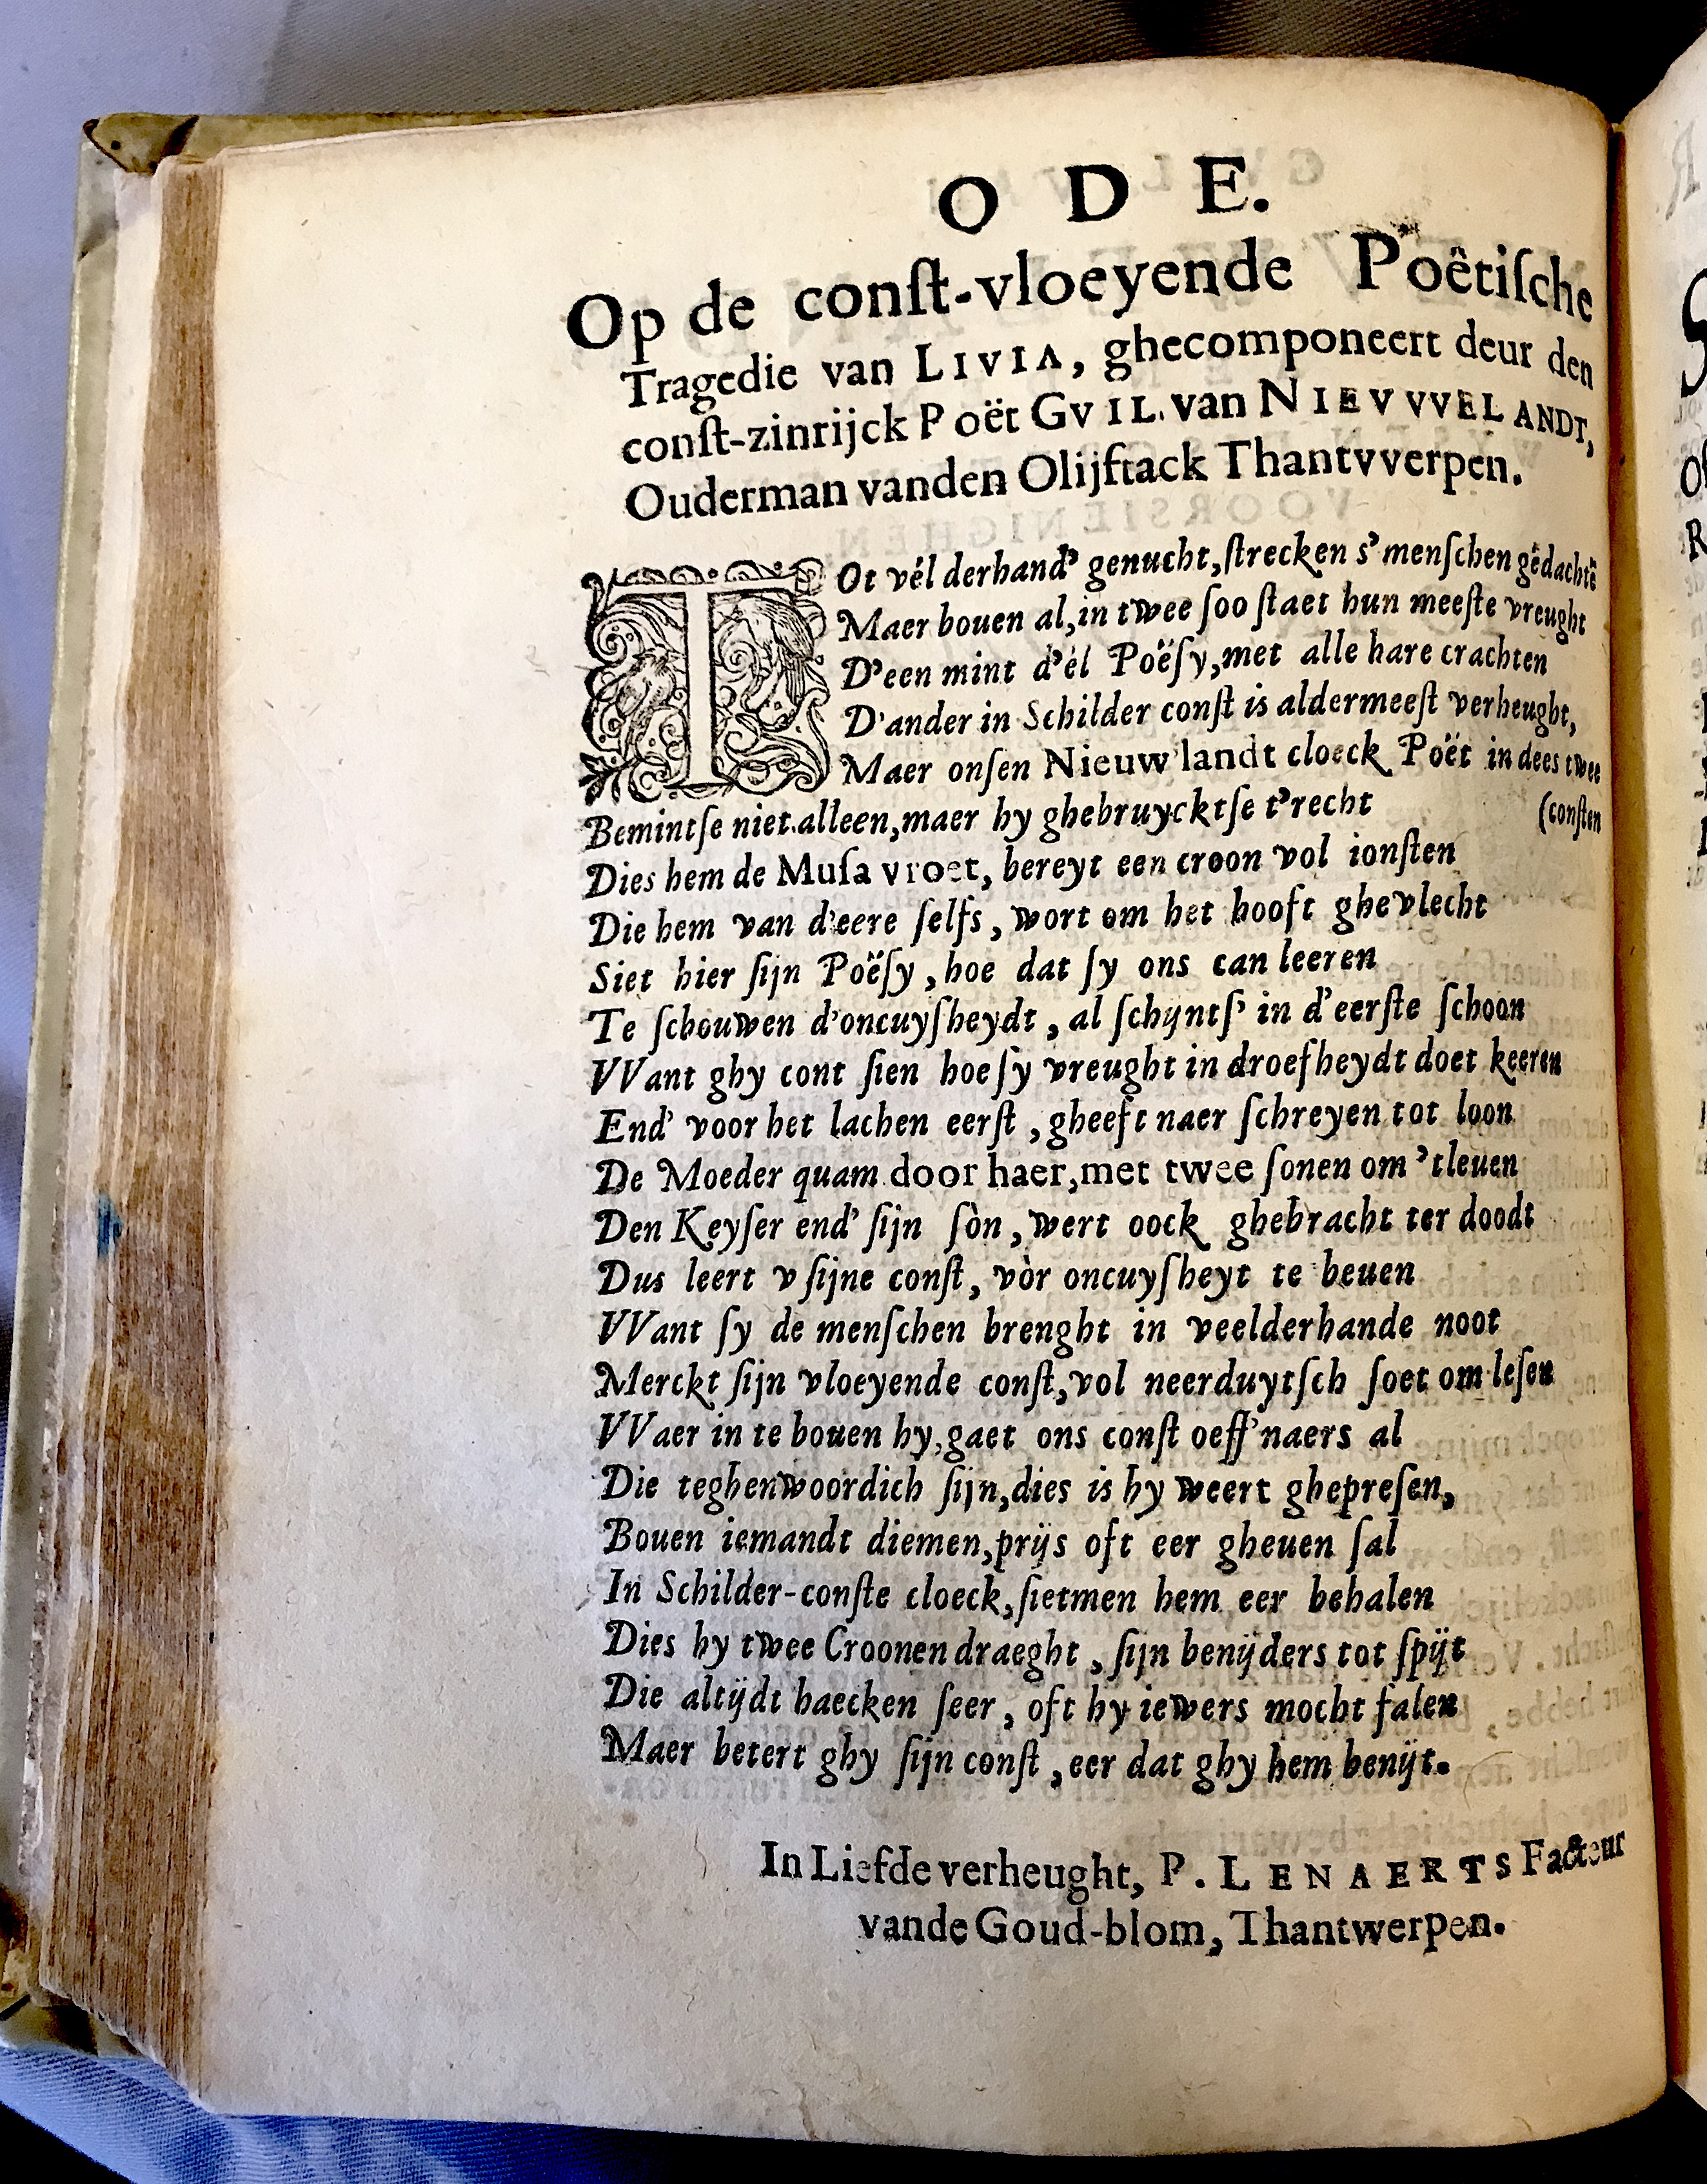 O D E.
Op de conſt-vloeyende Poëtiſche
Tragedie van LIVIA, ghecomponeert deur den
conſt-zinrijck Poët GVIL. van NIEVVVELANDT,
Ouderman vanden Olijftack Thantvverpen.
TOt vél derhand' genucht, ſtrecken s'menſchen gedachtē
Maer bouen al, in twee ſoo ſtaet hun meeſte vreught
D'een mint d'él Poëſy, met alle hare crachten
D'ander in Schilder conſt is aldermeeſt verheught,
Maer onſen Nieuw'landt cloeck Poët in dees twee
(conſten
Bemintſe niet alleen, maer hy ghebruycktſe t'recht
Dies hem de Muſa vroet, bereyt een croon vol ionſten
Die hem van d'eere ſelfs, wort om het hooft ghevlecht
Siet hier ſijn Poëſy, hoe dat ſy ons can leeren
Te ſchouwen d'oncuyſheydt, al ſchijntſ' in d'eerſte ſchoon
VVant ghy cont ſien hoe ſy vreught in droefheydt doet keeren
End' voor het lachen eerſt, gheeft naer ſchreyen tot loon
De Moeder quam door haer, met twee ſonen om 'tleuen
Den Keyſer end' ſijn ſòn, wert oock ghebracht ter doodt
Dus leert v ſijne conſt, vòr oncuyſheyt te beuen
VVant ſy de menſchen brenght in veelderhande noot
Merckt ſijn vloeyende conſt, vol neerduytſch ſoet om leſen
VVaer in te bouen hy, gaet ons conſt oeff'naers al
Die teghenwoordich ſijn, dies is hy weert ghepreſen,
Bouen iemandt diemen, prijs oft eer gheuen ſal
In Schilder-conſte cloeck, ſietmen hem eer behalen
Dies hy twee Croonen draeght, ſijn benijders tot ſpijt
Die altijdt haecken ſeer, oft hy iewers mocht falen
Maer betert ghy ſijn conſt, eer dat ghy hem benijt.
In Liefde verheught, P. LENAERTS Facteur
vande Goud-blom, Thantwerpen.